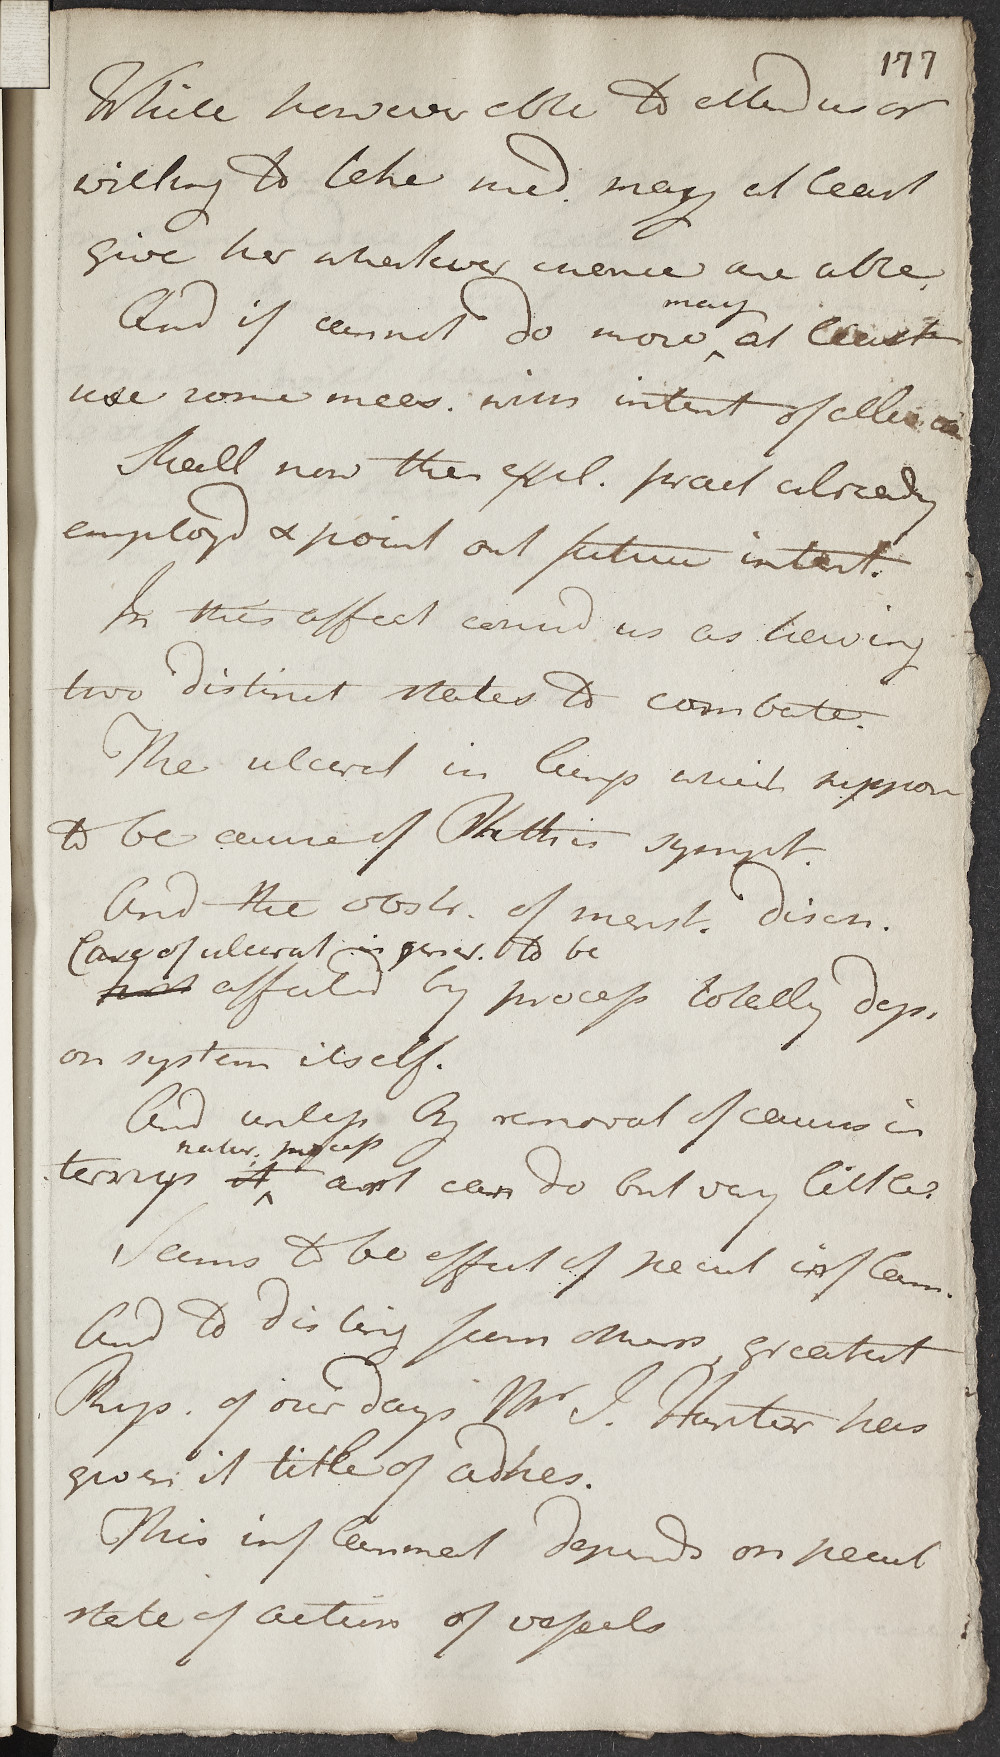 177
While however able to attend us or
willing to take med. may at least
give her whatever menee are able.
may
And if cannot do more at least
use some meas. with intent of allev
Shall now then expl. pract already
employd & point out future intent.
In this affect consid us as having
two distinct states to combate.
The ulcerat in lungs which suppose
to be cause of Phthis sympt.
And the obstr. of menst. discn.
Case of ulcerat in gener. to be
affected by process totally dep.
on system itself.
And unless by removal of causes in
natur. process
terrups it art can do but very little.
Seems to be effect of pecult inflam.
And to disting from others, greatest
Phys. of our days Mr J. Hunter has
given it title of adhes.
This inflammat depends on pecul
state of action of vessels